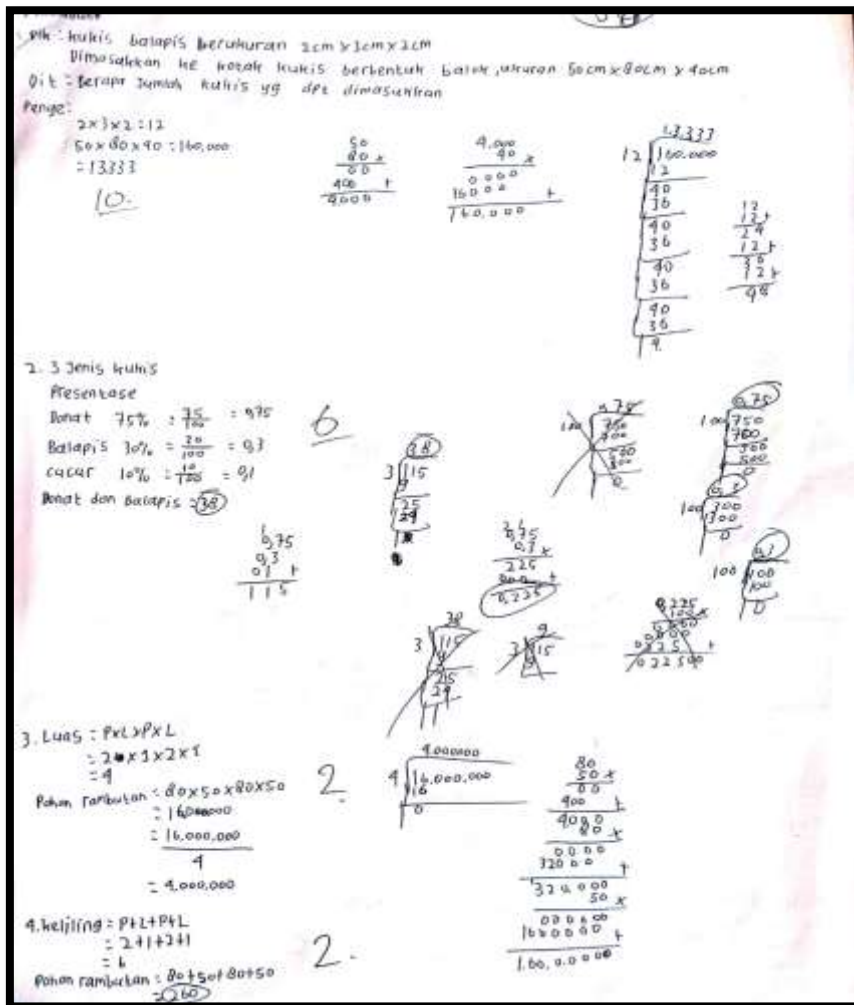 Dik : kukis balapis berukuran 2cm x 3cm x 2cm
Dimasakkan ke kotak kukis berbentuk balok, ukuran 50cm x 80cm x 40cm
Dit : Berapa Jumlah kukis yg dpt dimasukkan
Penye:
2x3x2 : 12
50 x 80 x 40 : 160.000
= 13333
10.
50
80 x
00
400 +
4000
4.000
40 x
0000
16000 +
160.000
13.333
12 160.000
12
40
36
40
36
40
36
40
36
4
12
12 +
24
12 +
36
12 +
48
2. 3 Jenis kukis
Presentase
Donat 75% : 75/100 = 0,75
Balapis 30% = 30/100 = 0,3
cucur 10% = 10/100 = 0,1
Donat dan Balapis = 38
6
0,75
0,3
0,1 +
115
38
3 115
9
25
24
1
0,75
0,3 x
225
000 +
0,225
0,75
100 750
700
500
500
0
0,3
100 300
300
0
0,1
100 100
100
0
38
3 115
9
25
24
1
3 115
9
0,225
100 x
3. Luas : PxLxPxL
= 2x1x2x1
= 4
Pohon rambutan : 80x50x80x50
= 16000000
= 16.000.000
4
= 4.000.000
2.
4.000000
4 16.000.000
16
0
80
50 x
00
400 +
4000
80 x
0000
32000 +
320.000
50 x
000000
1600000 +
4. keliling = P+L+P+L
= 2+1+2+1
= 6
Pohon rambutan : 80+50+80+50
= 260
2.